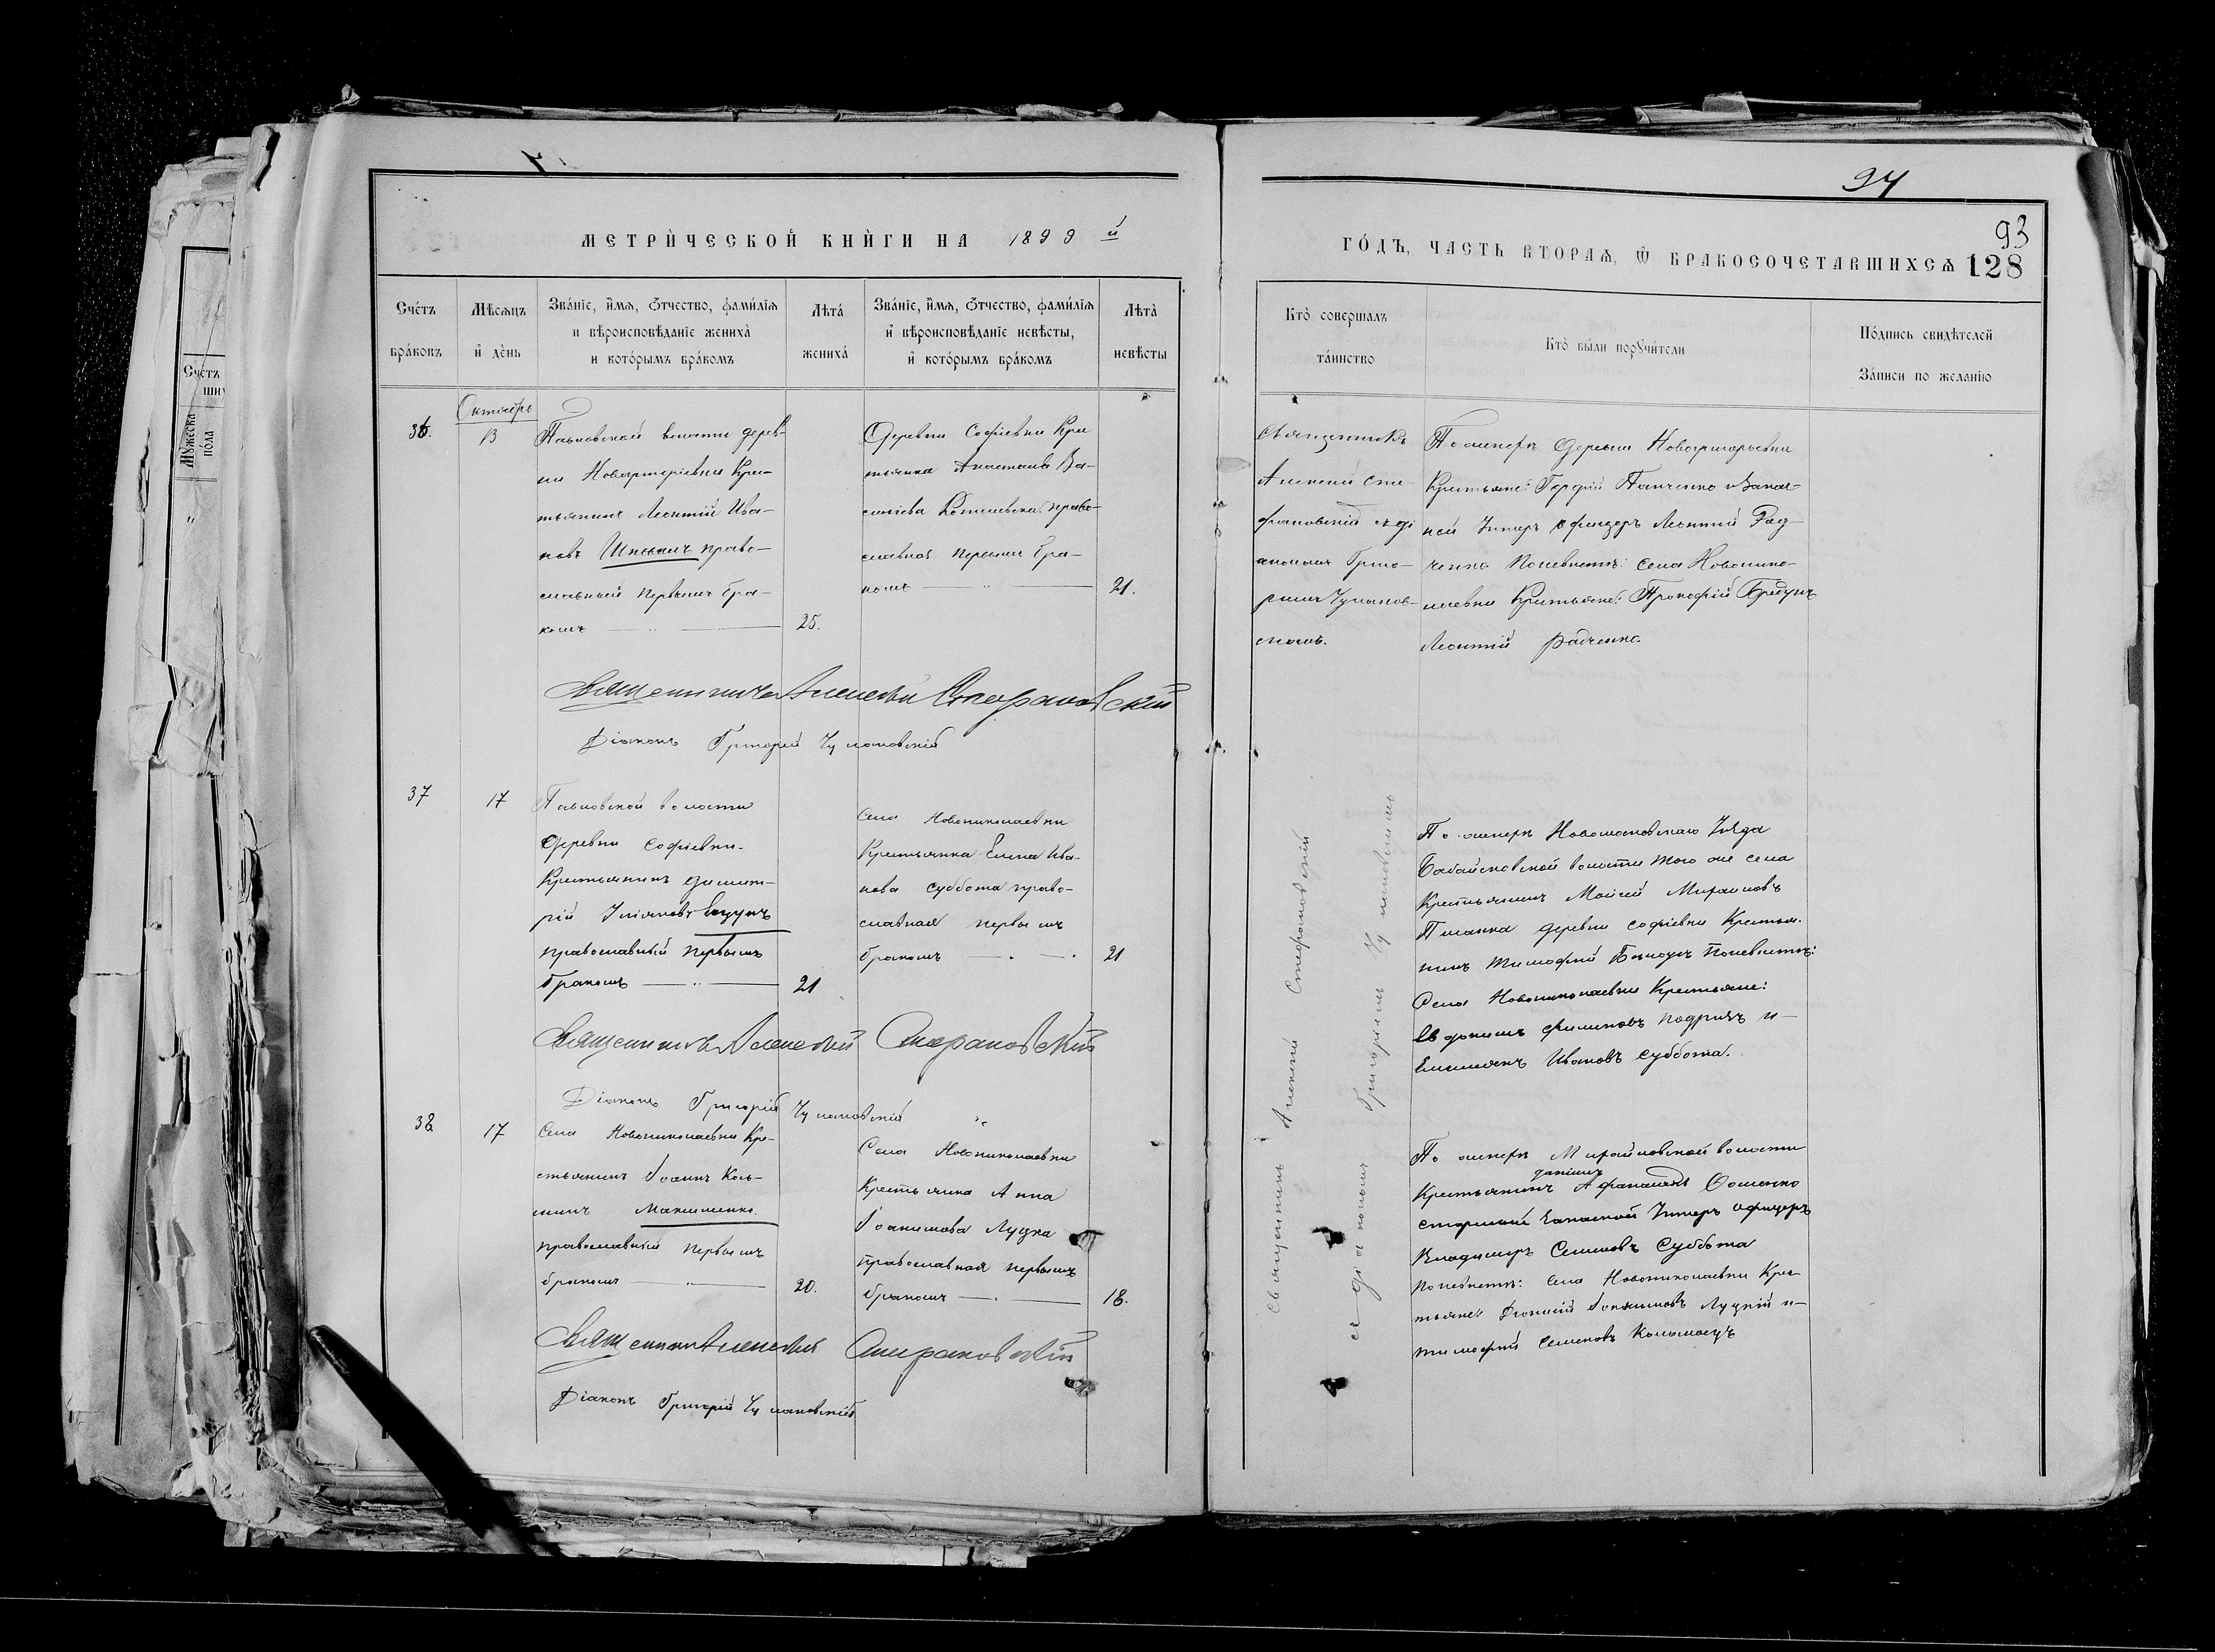 94
93
128
МЕТРИЧЕСКОЙ КНИГИ НА 1899 й
ГОДЪ, ЧАСТЬ ВТОРАЯ, Ѿ БРАКОСОЧЕТАВШИХСЯ
Счетъ браковъ
Мѣсяцъ и день
Званіе, имя, отчество, фамилія
и вѣроисповѣданіе жениха
и которымъ бракомъ
Лѣта жениха
Званіе, имя, отчество, фамилія
и вѣроисповѣданіе невѣсты,
и которымъ бракомъ
Лѣта невѣсты
Кто совершалъ таинство
Кто были поручители
Подпись свидѣтелей
Записи по желанію
Счетъ
Мужеска пола
Октябрь
36.
13
Павловской волости дерев-
ни Новогригорьевки Кре-
стьянинъ Леонтій Ива-
новъ православный первымъ бра-
комъ
25.
Деревни Софіевки Кре
стьянка Анастасія Ва-
сильева право-
славная первымъ бра-
комъ
21.
Священникъ
Алексей Сте-
фановскій съ ді
акономъ Григо-
ріемъ Чумаков-
скимъ.
По женихѣ деревни Новогригорьевки
Крестьяне: Панченко и Запас-
ной Унтеръ офицеръ Леонтій Рад-
ченко По невѣстѣ: села Новонико-
лаевки Крестьяне: Прокофій
Леонтій Радченко.
Священникъ Алексей Стефановскій
Діаконъ Григорій Чумаковскій
37
17
Павловской волости
Деревни Софіевки
Крестьянинъ Димит-
рій
православный первымъ
бракомъ
21
Села Новониколаевки
Крестьянка Елена Ива-
нова Суббота право-
славная первымъ
бракомъ
21
Священникъ Алексей Стефановскій
съ діакономъ Григоріемъ Чумаковскимъ
По женихѣ Новомосковскаго Уѣзда
волости того же села
Крестьянинъ Моисей
деревни Софіевки Крестья-
нинъ Тимофей По невѣстѣ:
Села Новониколаевки Крестьяне:
и
Емельянъ Ивановъ Суббота.
Священникъ Алексей Стефановскій
Діаконъ Григорій Чумаковскій
38.
17
Села Новониколаевки Кре-
стьянинъ Іоаннъ Козь-
минъ Макименко
православный первымъ
бракомъ
20.
Села Новониколаевки
Крестьянка Анна
Іоакимова Луцка
православная первымъ
бракомъ
18.
По женихѣ Михайловской волости
Крестьянинъ Фоменко
старшій Запасной Унтеръ Офицеръ
Владимиръ Семеновъ Суббота
По невѣстѣ: села Новониколаевки Кре-
стьяне: Іоакимовъ Луцкій и
Тимофей Семеновъ Коломоецъ
Священникъ Алексей Стефановскій
Діаконъ Григорій Чумаковскій